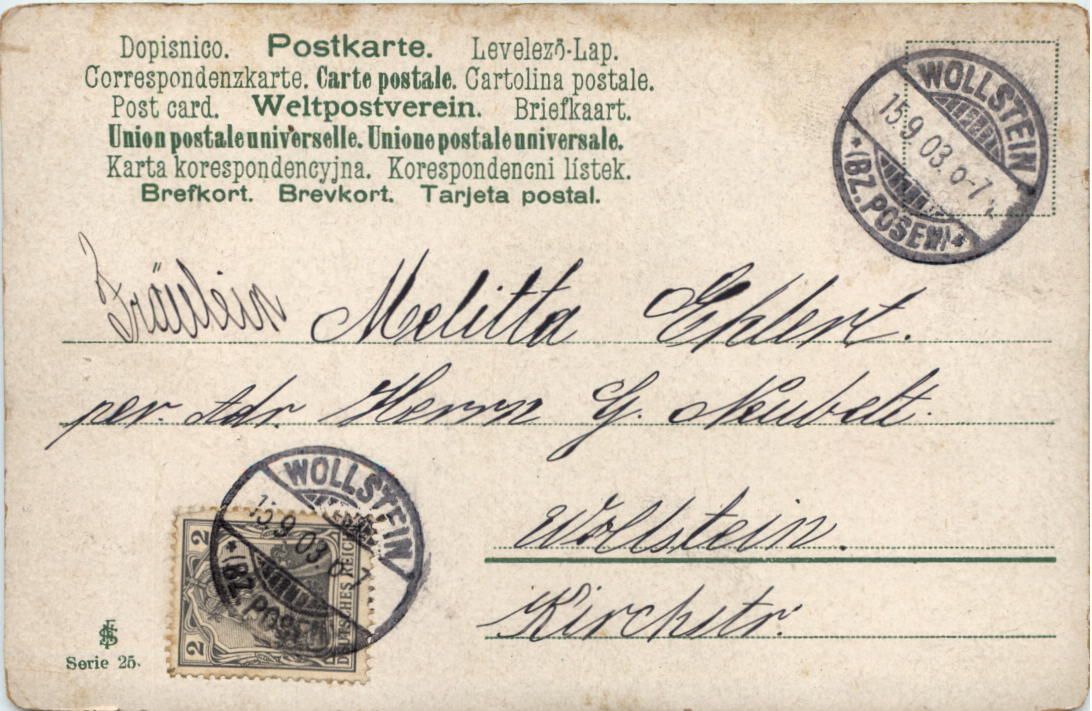 Dopisnico. Postkarte. Levelező-Lap.
Correspondenzkarte. Carte postale. Cartolina postale.
Post card. Weltpostverein. Briefkaart.
Union postale universelle. Unione postale universale.
Karta korespondencyjna. Korespondencni lístek.
Brefkort. Brevkort. Tarjeta postal.
WOLLSTEIN
15.9.03. 6-7
*(BZ. POSEN)*
Fräulein Melitta Ehlert.
per. Adr. Herrn G. Neubelt.
Wollstein.
Kirchstr.
WOLLSTEIN
15.9.03. 6-7
*(BZ. POSEN
2 2
DEUTSCHES REICH
Serie 25.